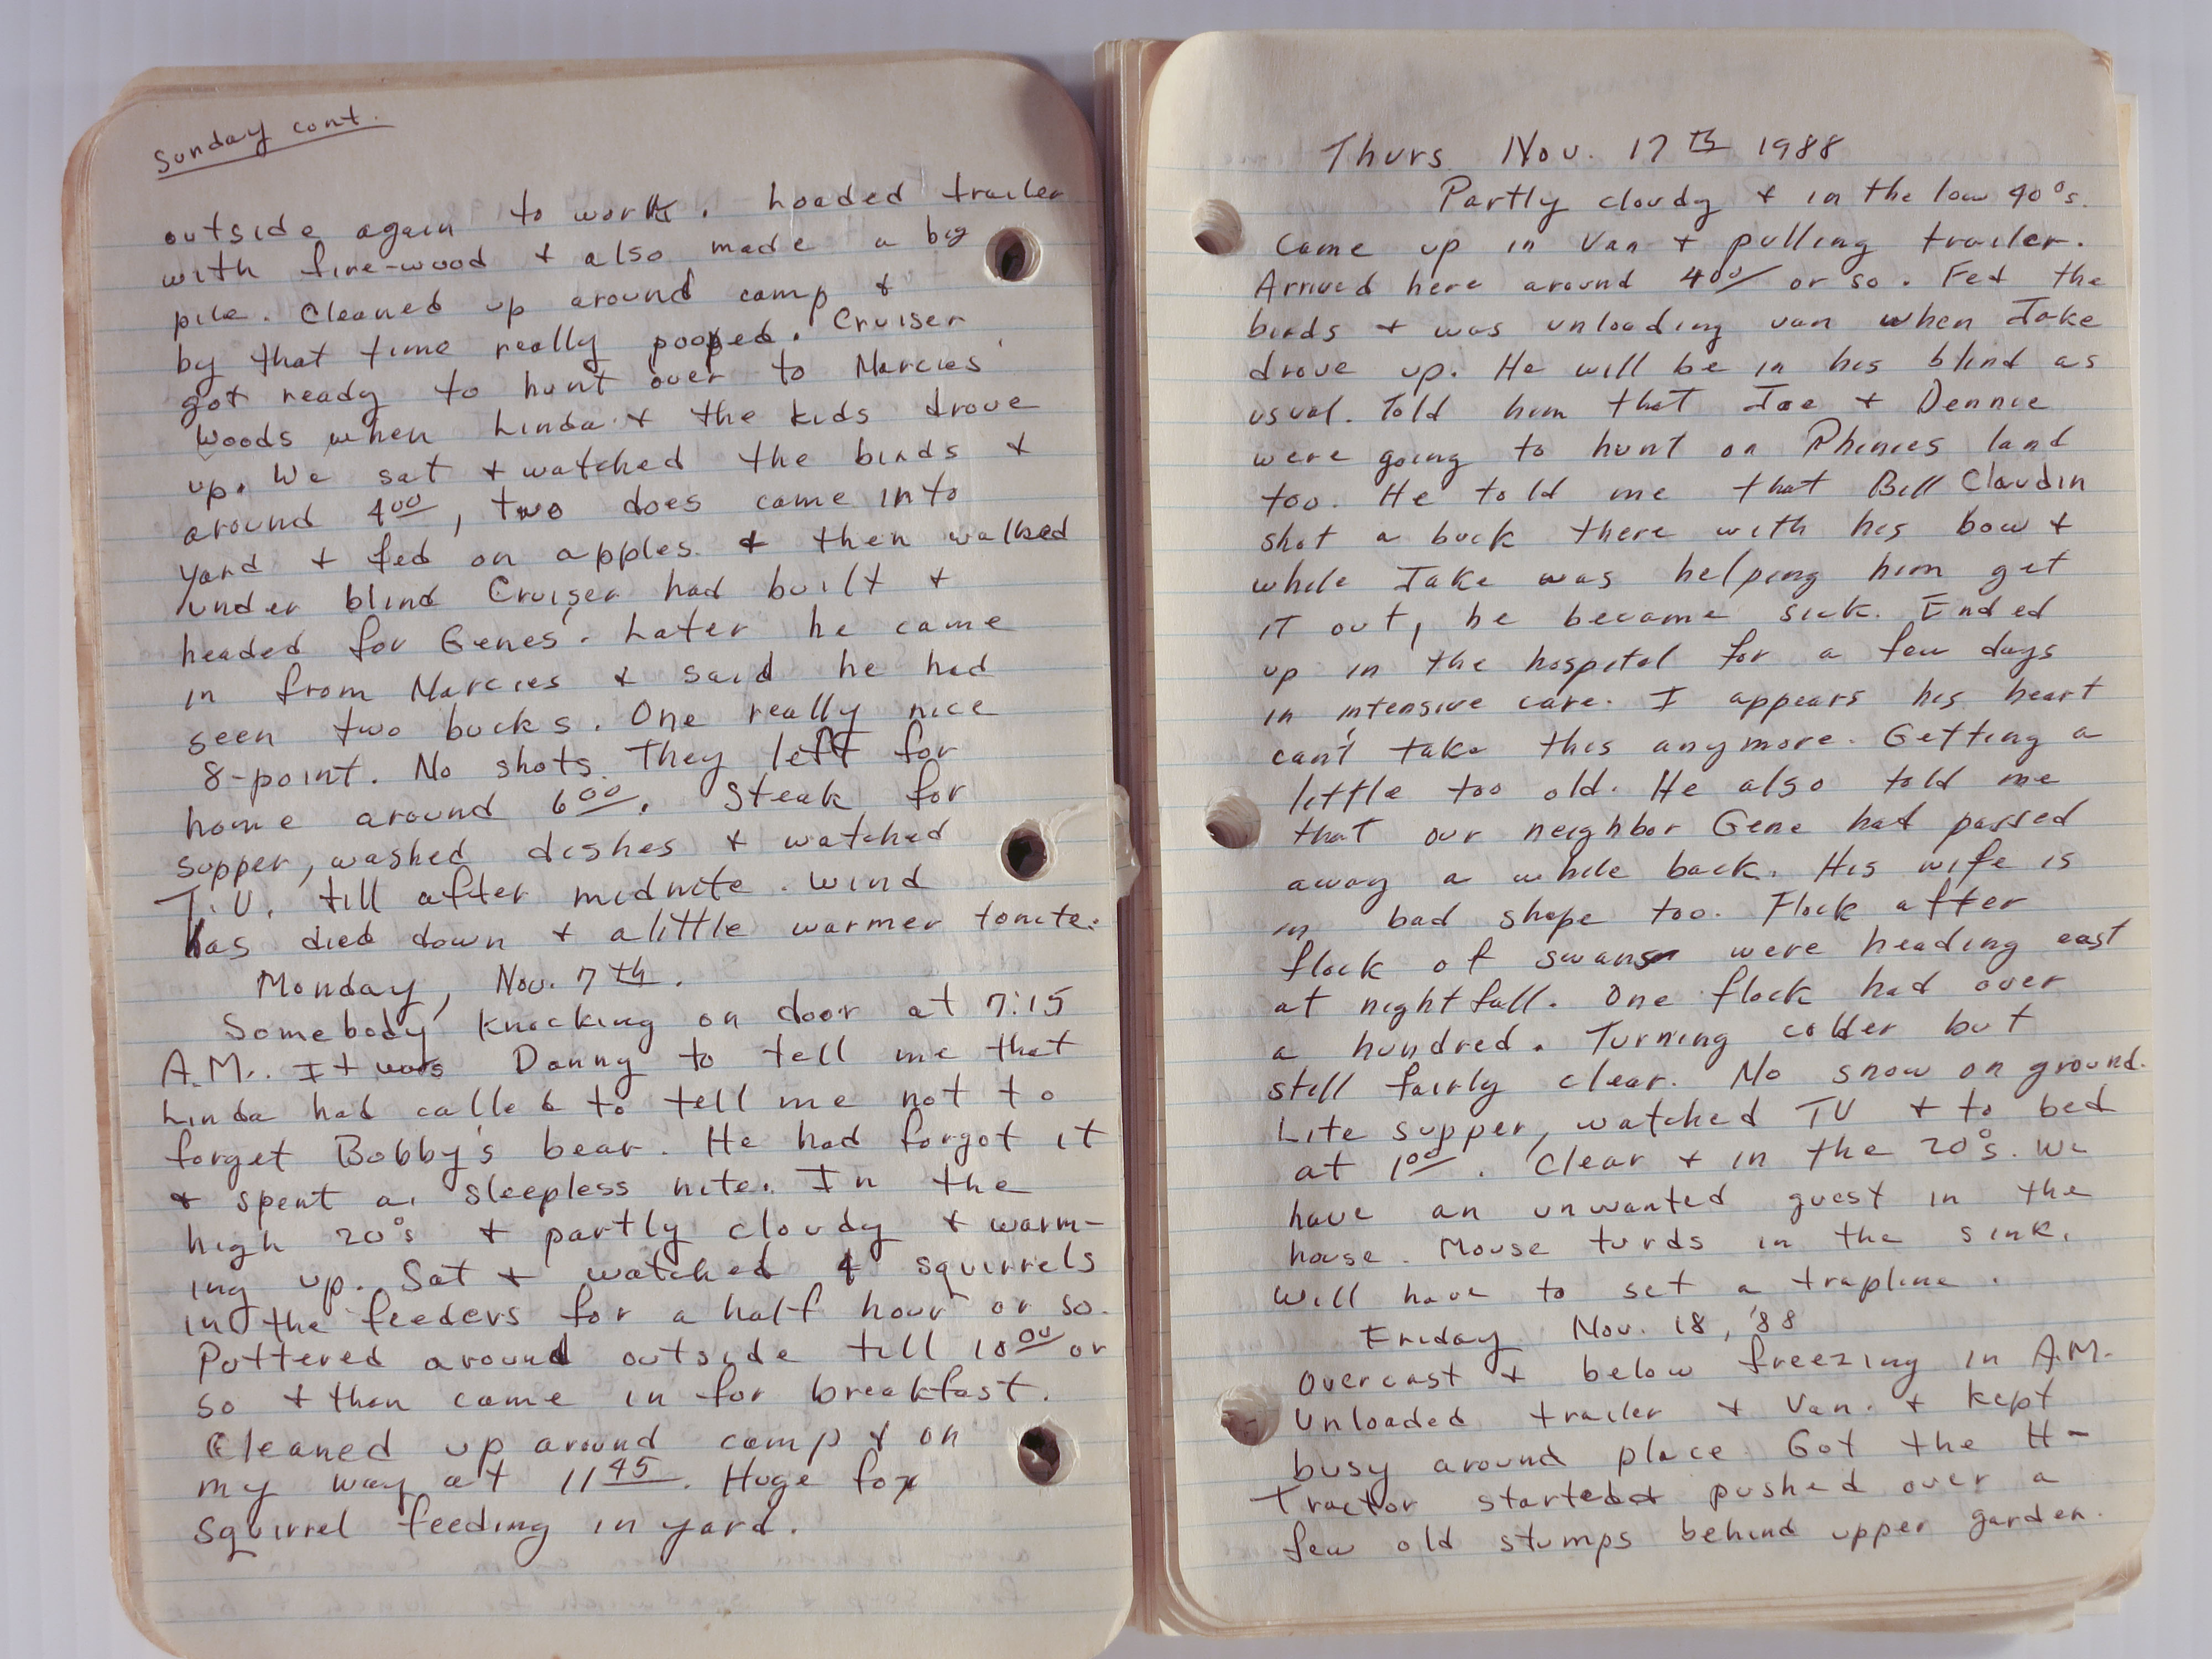 Sunday cont.
outside again to work. Loaded trailer
with fire-wood & also made a big
pile. Cleaned up around camp &
by that time really pooped. Cruiser
got ready to hunt over to Marcies'
woods when Linda & the kids drove
up. We sat & watched the birds &
around 4⁰⁰, two does came into
yard & fed on apples & then walked
under blind Cruiser had built &
headed for Genes'. Later he came
in from Marcies & said he had
seen two bucks. One really nice
8-point. No shots. They left for
home around 6⁰⁰. Steak for
supper, washed dishes & watched
T.V. till after midnite. Wind
has died down & a little warmer tonite.
Monday, Nov. 7th.
Somebody knocking on door at 7:15
A.M.. It was Danny to tell me that
Linda had called to tell me not to
forget Bobby's bear. He had forgot it
& spent a sleepless nite. In the
high 20°s & partly cloudy & warm-
ing up. Sat & watched 4 squirrels
in the feeders for a half hour or so.
Puttered around outside till 10⁰⁰ or
so & then came in for breakfast.
Cleaned up around camp & on
my way at 11⁴⁵. Huge fox
squirrel feeding in yard.
Thurs Nov. 17th 1988
Partly cloudy & in the low 40°s.
Came up in Van & pulling trailer.
Arrived here around 4⁰⁰ or so. Fed the
birds & was unloading van when Jake
drove up. He will be in his blind as
usual. Told him that Joe & Dennie
were going to hunt on Phinies land
too. He told me that Bill Claudin
shot a buck there with his bow &
while Jake was helping him get
it out, he became sick. Ended
up in the hospital for a few days
in intensive care. I appears his heart
can't take this anymore. Getting a
little too old. He also told me
that our neighbor Gene had passed
away a while back. His wife is
in bad shape too. Flock after
flock of swans were heading east
at nightfall. One flock had over
a hundred. Turning colder but
still fairly clear. No snow on ground.
Lite supper, watched TV & to bed
at 1⁰⁰. Clear & in the 20°s. We
have an unwanted guest in the
house. Mouse turds in the sink.
Will have to set a trapline.
Friday Nov. 18, '88
Overcast & below freezing in A.M.
Unloaded trailer & Van. & kept
busy around place. Got the H-
Tractor started pushed over a
few old stumps behind upper garden.